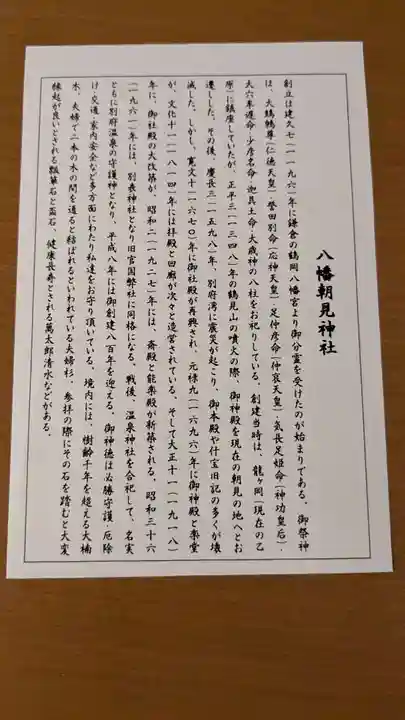 八幡朝見神社
創立は建久七(一一九六)年に鎌倉の鶴岡八幡宮より御分霊を受けたのが始まりである。御祭神
は、大鷦鷯尊(仁徳天皇)・誉田別命(応神天皇)・足仲彦命(仲哀天皇)・気長足姫命(神功皇后)・
大六牟遅命・少彦名命・迦具土命・大歳神の八柱をお祀りしている。創建当時は、龍ヶ岡(現在の乙
原)に鎮座していたが、正平三(一三四八)年の鶴見山の噴火の際、御神殿を現在の朝見の地へとお
遷しした。その後、慶長三(一五九八)年、別府湾に震災が起こり、御本殿や什宝旧記の多くが壊
滅した。しかし、寛文十(一六七〇)年に御社殿が再興され、元禄九(一六九六)年に御神殿と楽堂
が、文化十一(一八一四)年には拝殿と回廊が次々と造営されている。そして大正十一(一九一八)
年に、御社殿の大改築が、昭和二(一九二七)年には、斎殿と能楽殿が新築される。昭和三十六
(一九六一)年には、別表神社となり旧官国弊社に同格になる。戦後、温泉神社を合祀して、名実
ともに別府温泉の守護神となり、平成八年には御創建八百年を迎える。御神徳は必勝守護・厄除
け・交通・家内安全など多方面にわたり私達をお守り頂いている。境内には、樹齢千年を超える大楠
木、夫婦で二本の木の間を通ると結ばれるといわれている夫婦杉、参拝の際にその石を踏むと大変
縁起が良いとされる瓢箪石と盃石、健康長寿とされる萬太郎清水などがある。